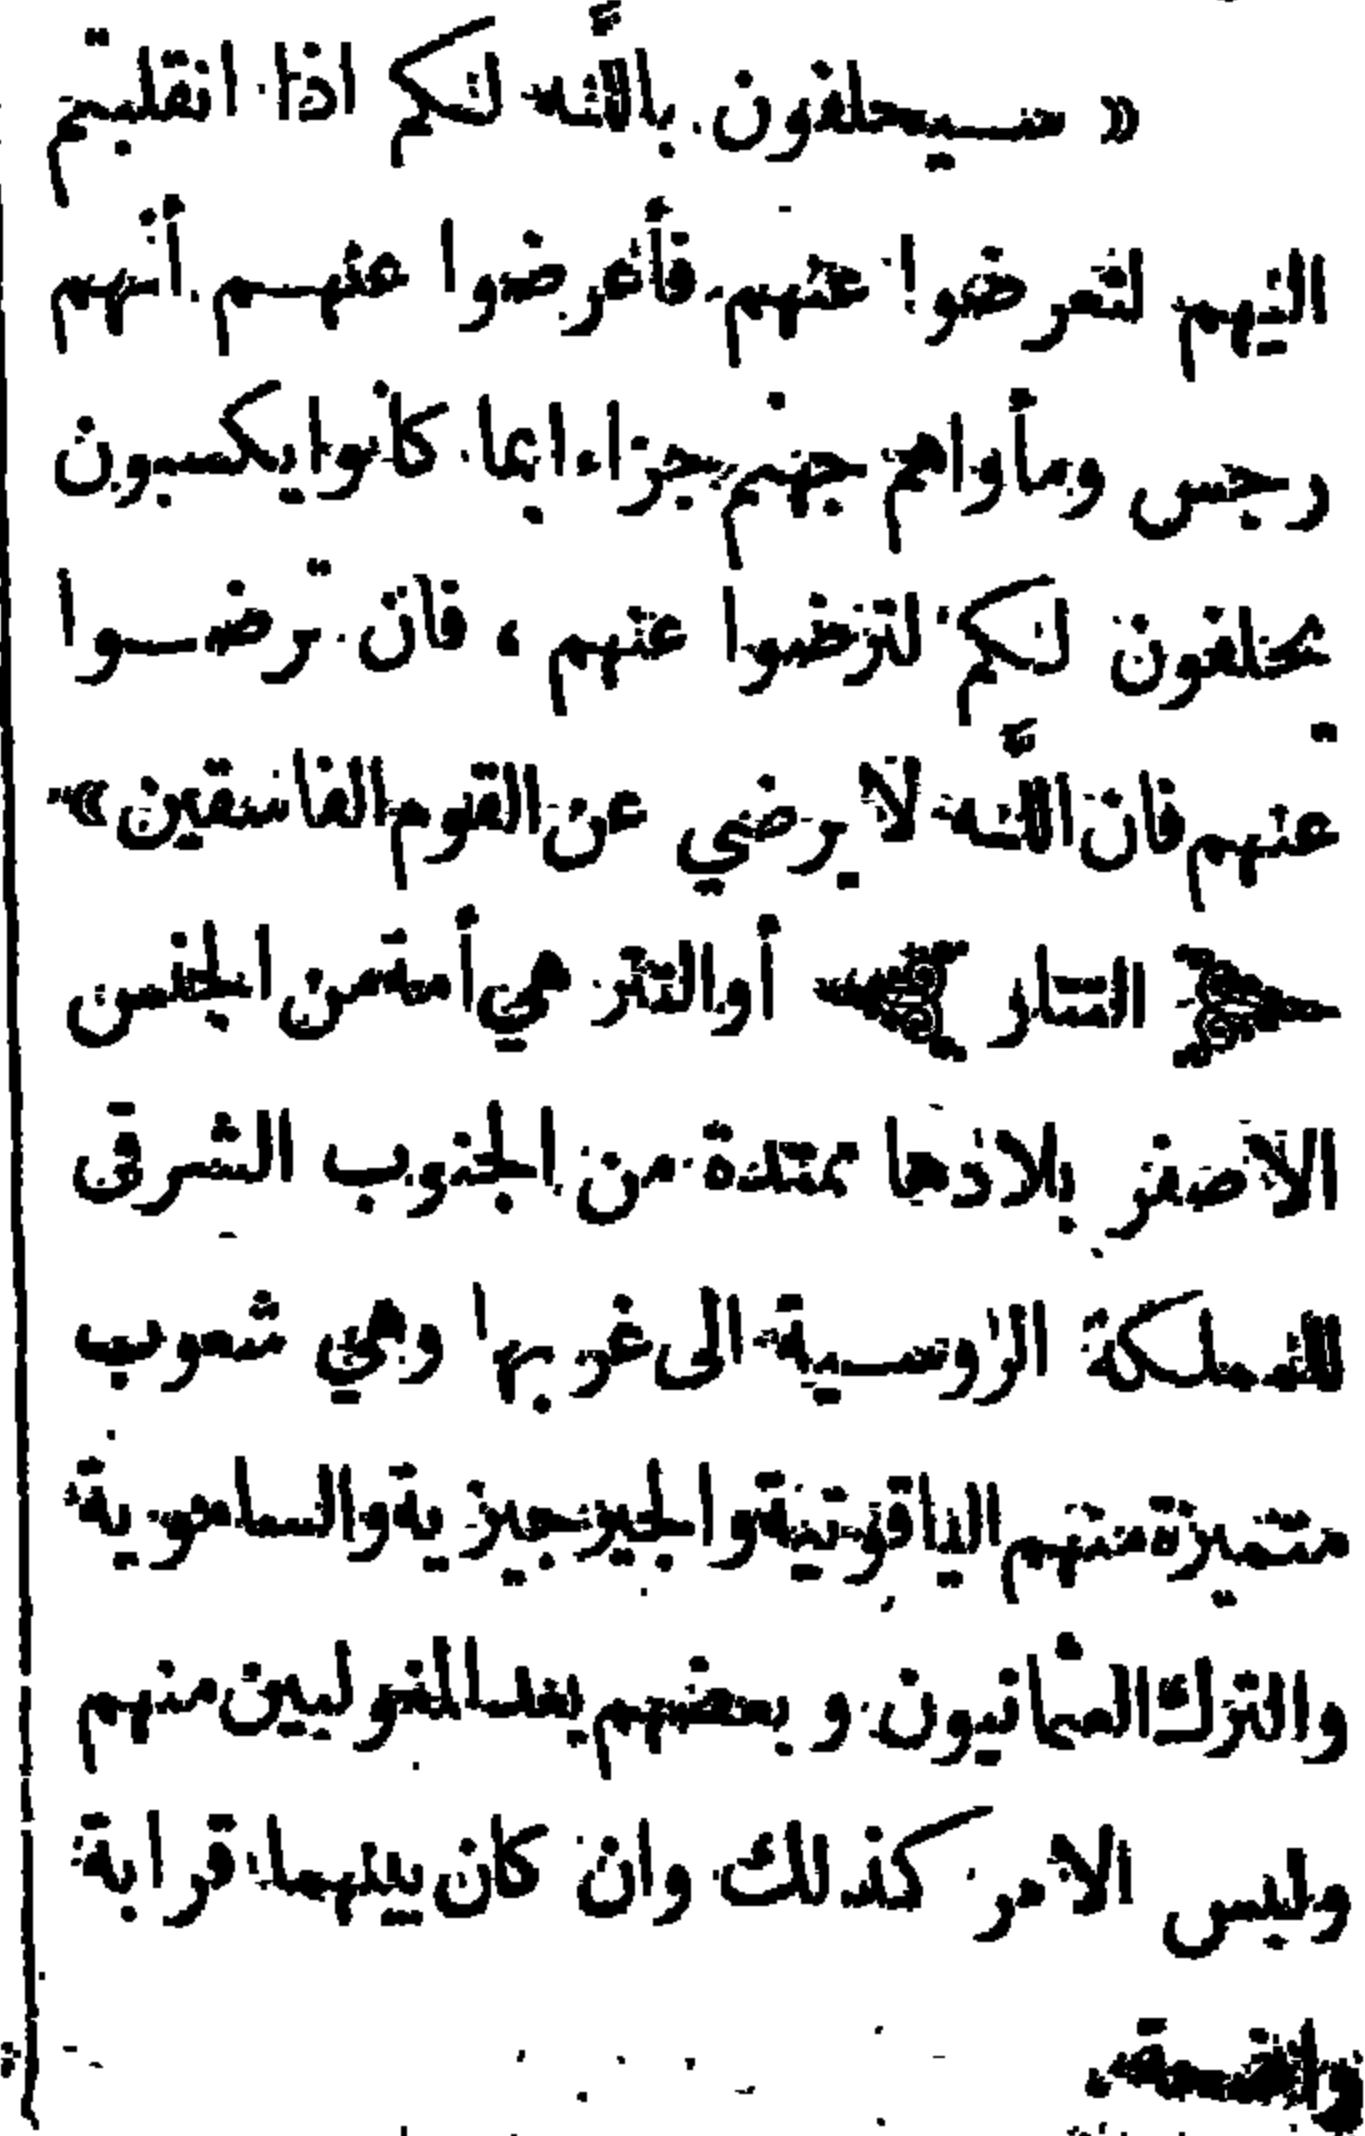 « سيحلفون بالله لكم اذا انقلبتم
اليهم لتعرضوا عنهم فأعرضوا عنهم أنهم
رجس ومأواهم جهنم جزاء بما كانوا يكسبون
يحلفون لكم لترضوا عنهم ، فان ترضوا
عنهم فان اللَّه لا يرضي عن القوم الفاسقين »
التتار أو التتر هي أمة من الجنس
الاصفر بلادها ممتدة من الجنوب الشرقى
للمملكة الروسية الى غربها وهي شعوب
متميزة منهم الياقوتية والجيرجيزية والساهوية
والترك العثمانيون و بعضهم يعد المغوليين منهم
وليس الامر كذلك وان كان بينهما قرابة
واضحة